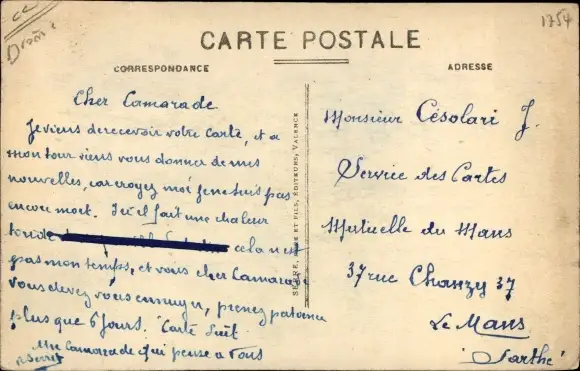 1754
Drôm
CARTE POSTALE
CORRESPONDANCE
ADRESSE
Cher Camarade
Je viens de recevoir votre carte, et a
mon tour viens vous donner de mes
nouvelles, car croyez moi je ne suis pas
encore mort. Ici il fait une chaleur
toride cela n'est
pas mon temps, et vous cher Camarade
vous devez vous ennuyer, prenez patience
plus que 6 jours. Carte suit
Une Camarade qui pense a vous
ET FILS, ÉDITEURS, VALENCE
Monsieur Césolari J.
Service des Cartes
Mutuelle du Mans
37 rue Chanzy 37
Le Mans
Sarthe